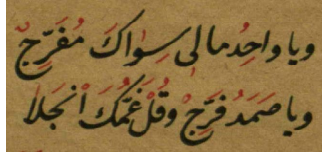 وياواحِدُ مالى سِوَاكَ مُفَرِّجٌ
وياصَمَدُ فَرِّجْ وقُلْ غَمُّكَ انْجَلَا